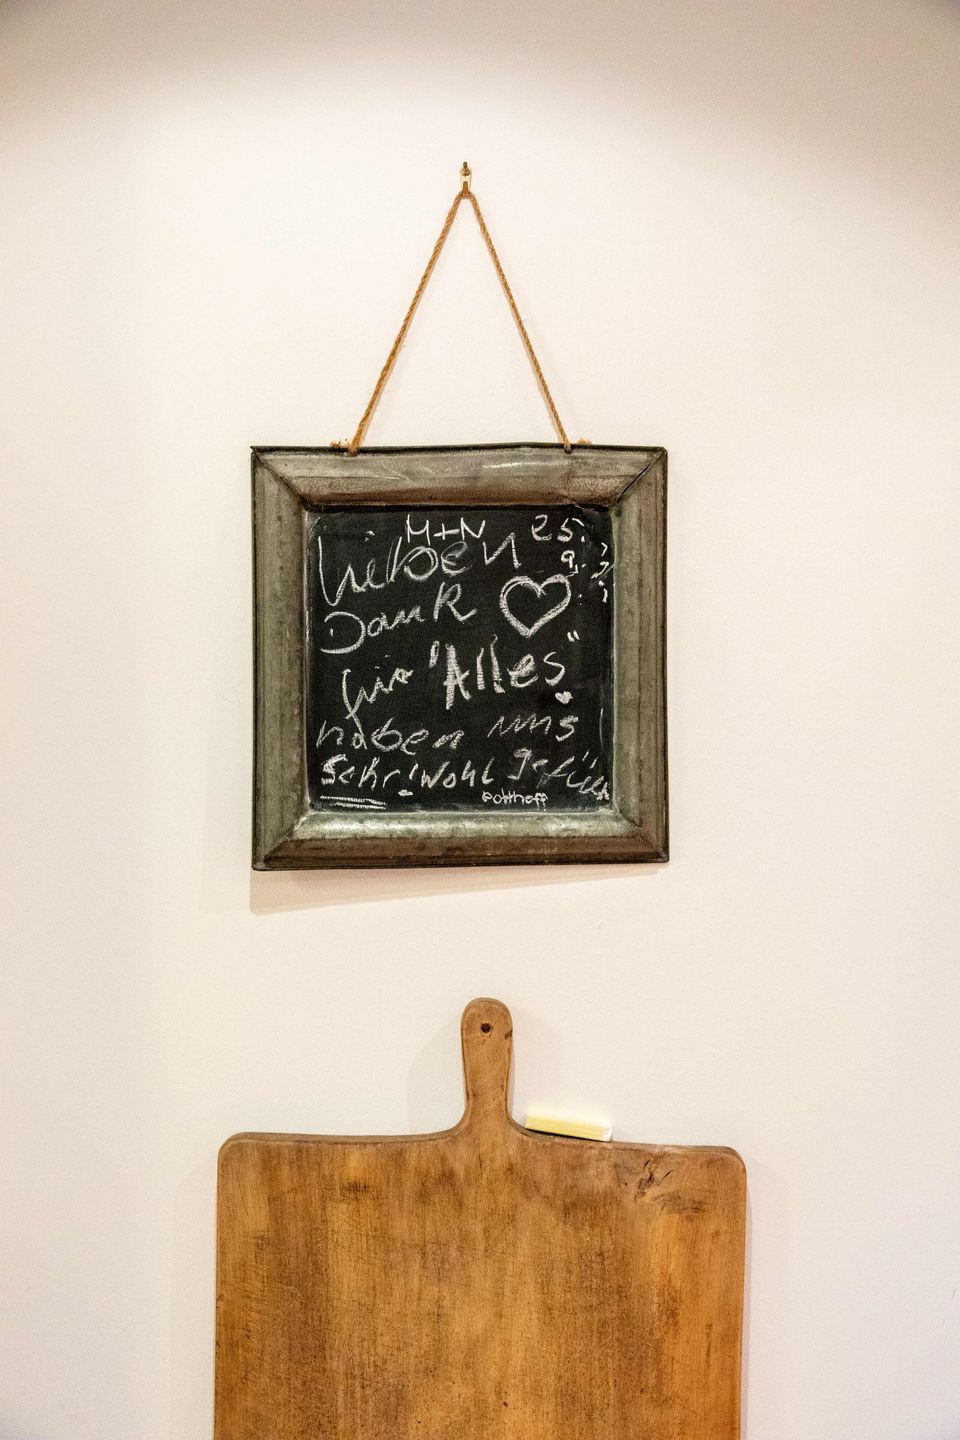 M+N 25.
Lieben 9.
Dank
für "Alles"
haben uns
Sehr! wohl gefühlt
Potthoff